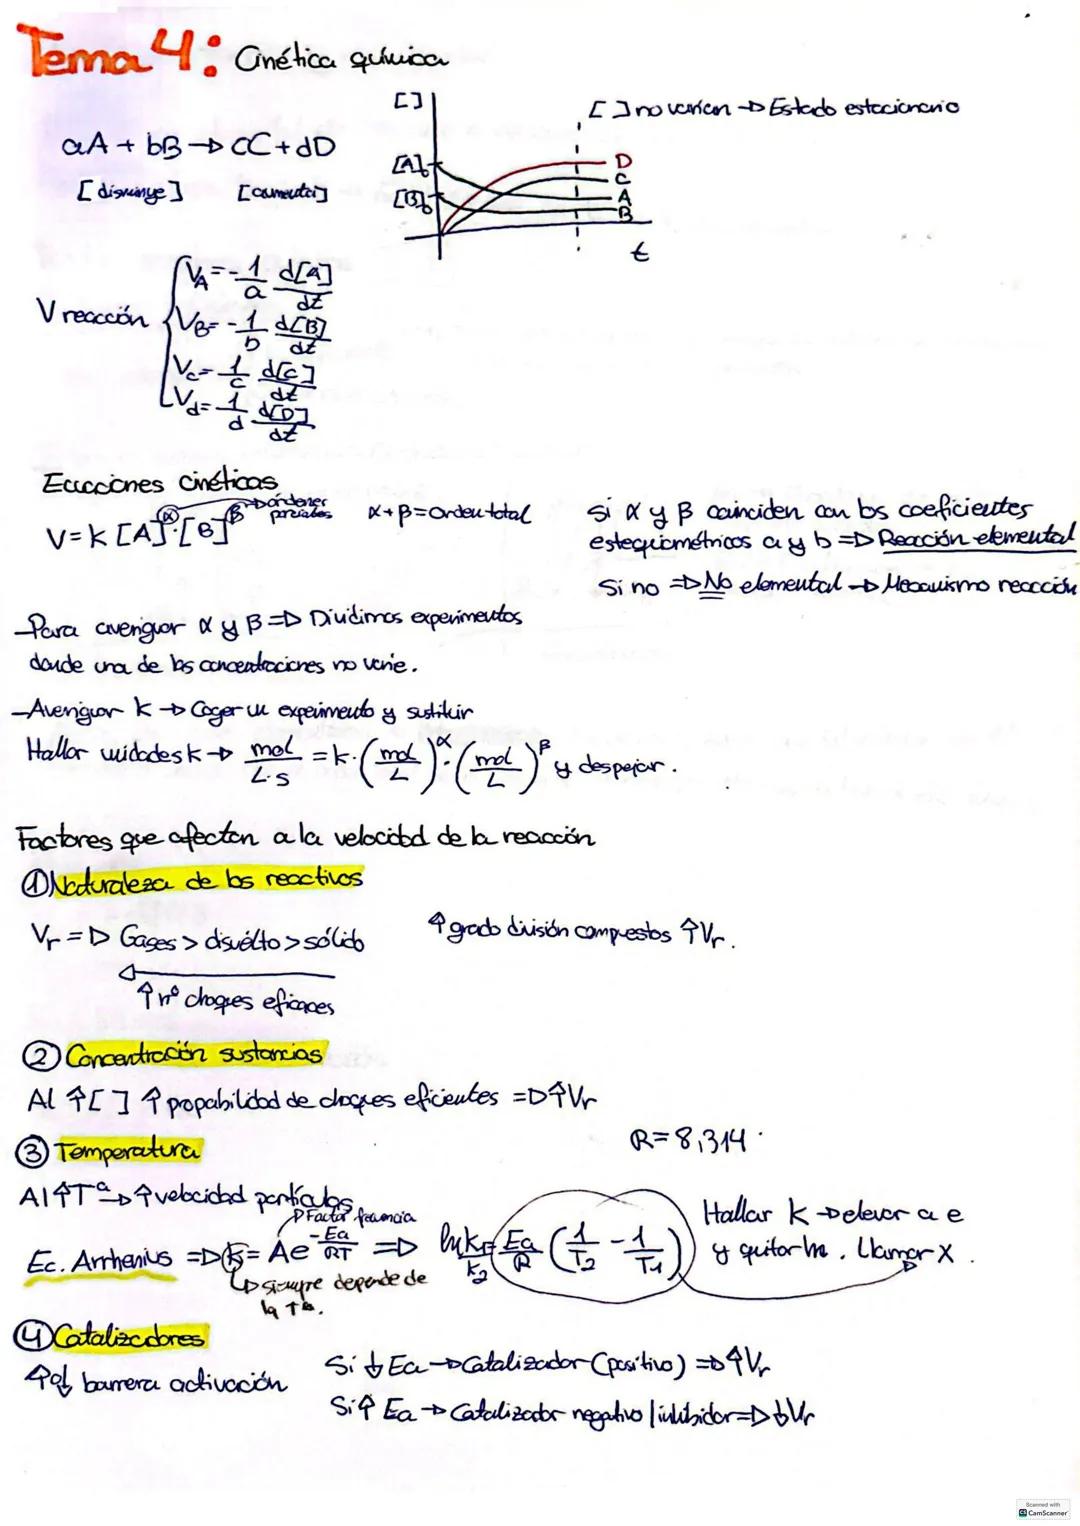 Tema 4: Cinética química
[ ]
[ ] no varían → Estado estacionario
aA + bB → cC + dD
[disminuye] [aumenta]
[A]₀
[B]₀
D
C
A
B
t
V reacción
V_A = -1/a d[A]/dt
V_B = -1/b d[B]/dt
V_c = 1/c d[C]/dt
V_d = 1/d d[D]/dt
Ecuaciones cinéticas
V = k [A]^α · [B]^β → órdenes parciales α + β = Orden total
Si α y β coinciden con los coeficientes
estequiométricos a y b ⇒ Reacción elemental
Si no ⇒ No elemental → Mecanismo reacción
- Para averiguar α y β ⇒ Dividimos experimentos
donde una de las concentraciones no varíe.
- Averiguar k → Coger un experimento y sustituir
Hallar unidades k → mol/L·s = k · (mol/L)^α · (mol/L)^β y despejar.
Factores que afectan a la velocidad de la reacción
① Naturaleza de los reactivos
Vr ⇒ Gases > disuelto > sólido ↑ grado división compuestos ↑Vr.
↑ nº choques eficaces
② Concentración sustancias
Al ↑[ ] ↑ propabilidad de choques eficientes ⇒ ↑Vr
③ Temperatura
R = 8,314
Al ↑Tª → ↑ velocidad partículas
Factor frecuencia
Ec. Arrhenius ⇒ k = Ae^(-Ea/RT) ⇒ ln k₁/k₂ = Ea/R (1/T₂ - 1/T₁)
siempre depende de
la Tª.
Hallar k → elevar a e
y quitar ln. Llamar X.
④ Catalizadores
↑ o ↓ barrera activación
Si ↓ Ea → Catalizador (positivo) ⇒ ↑Vr
Si ↑ Ea → Catalizador negativo / inhibidor ⇒ ↓Vr
Scanned with
CS CamScanner